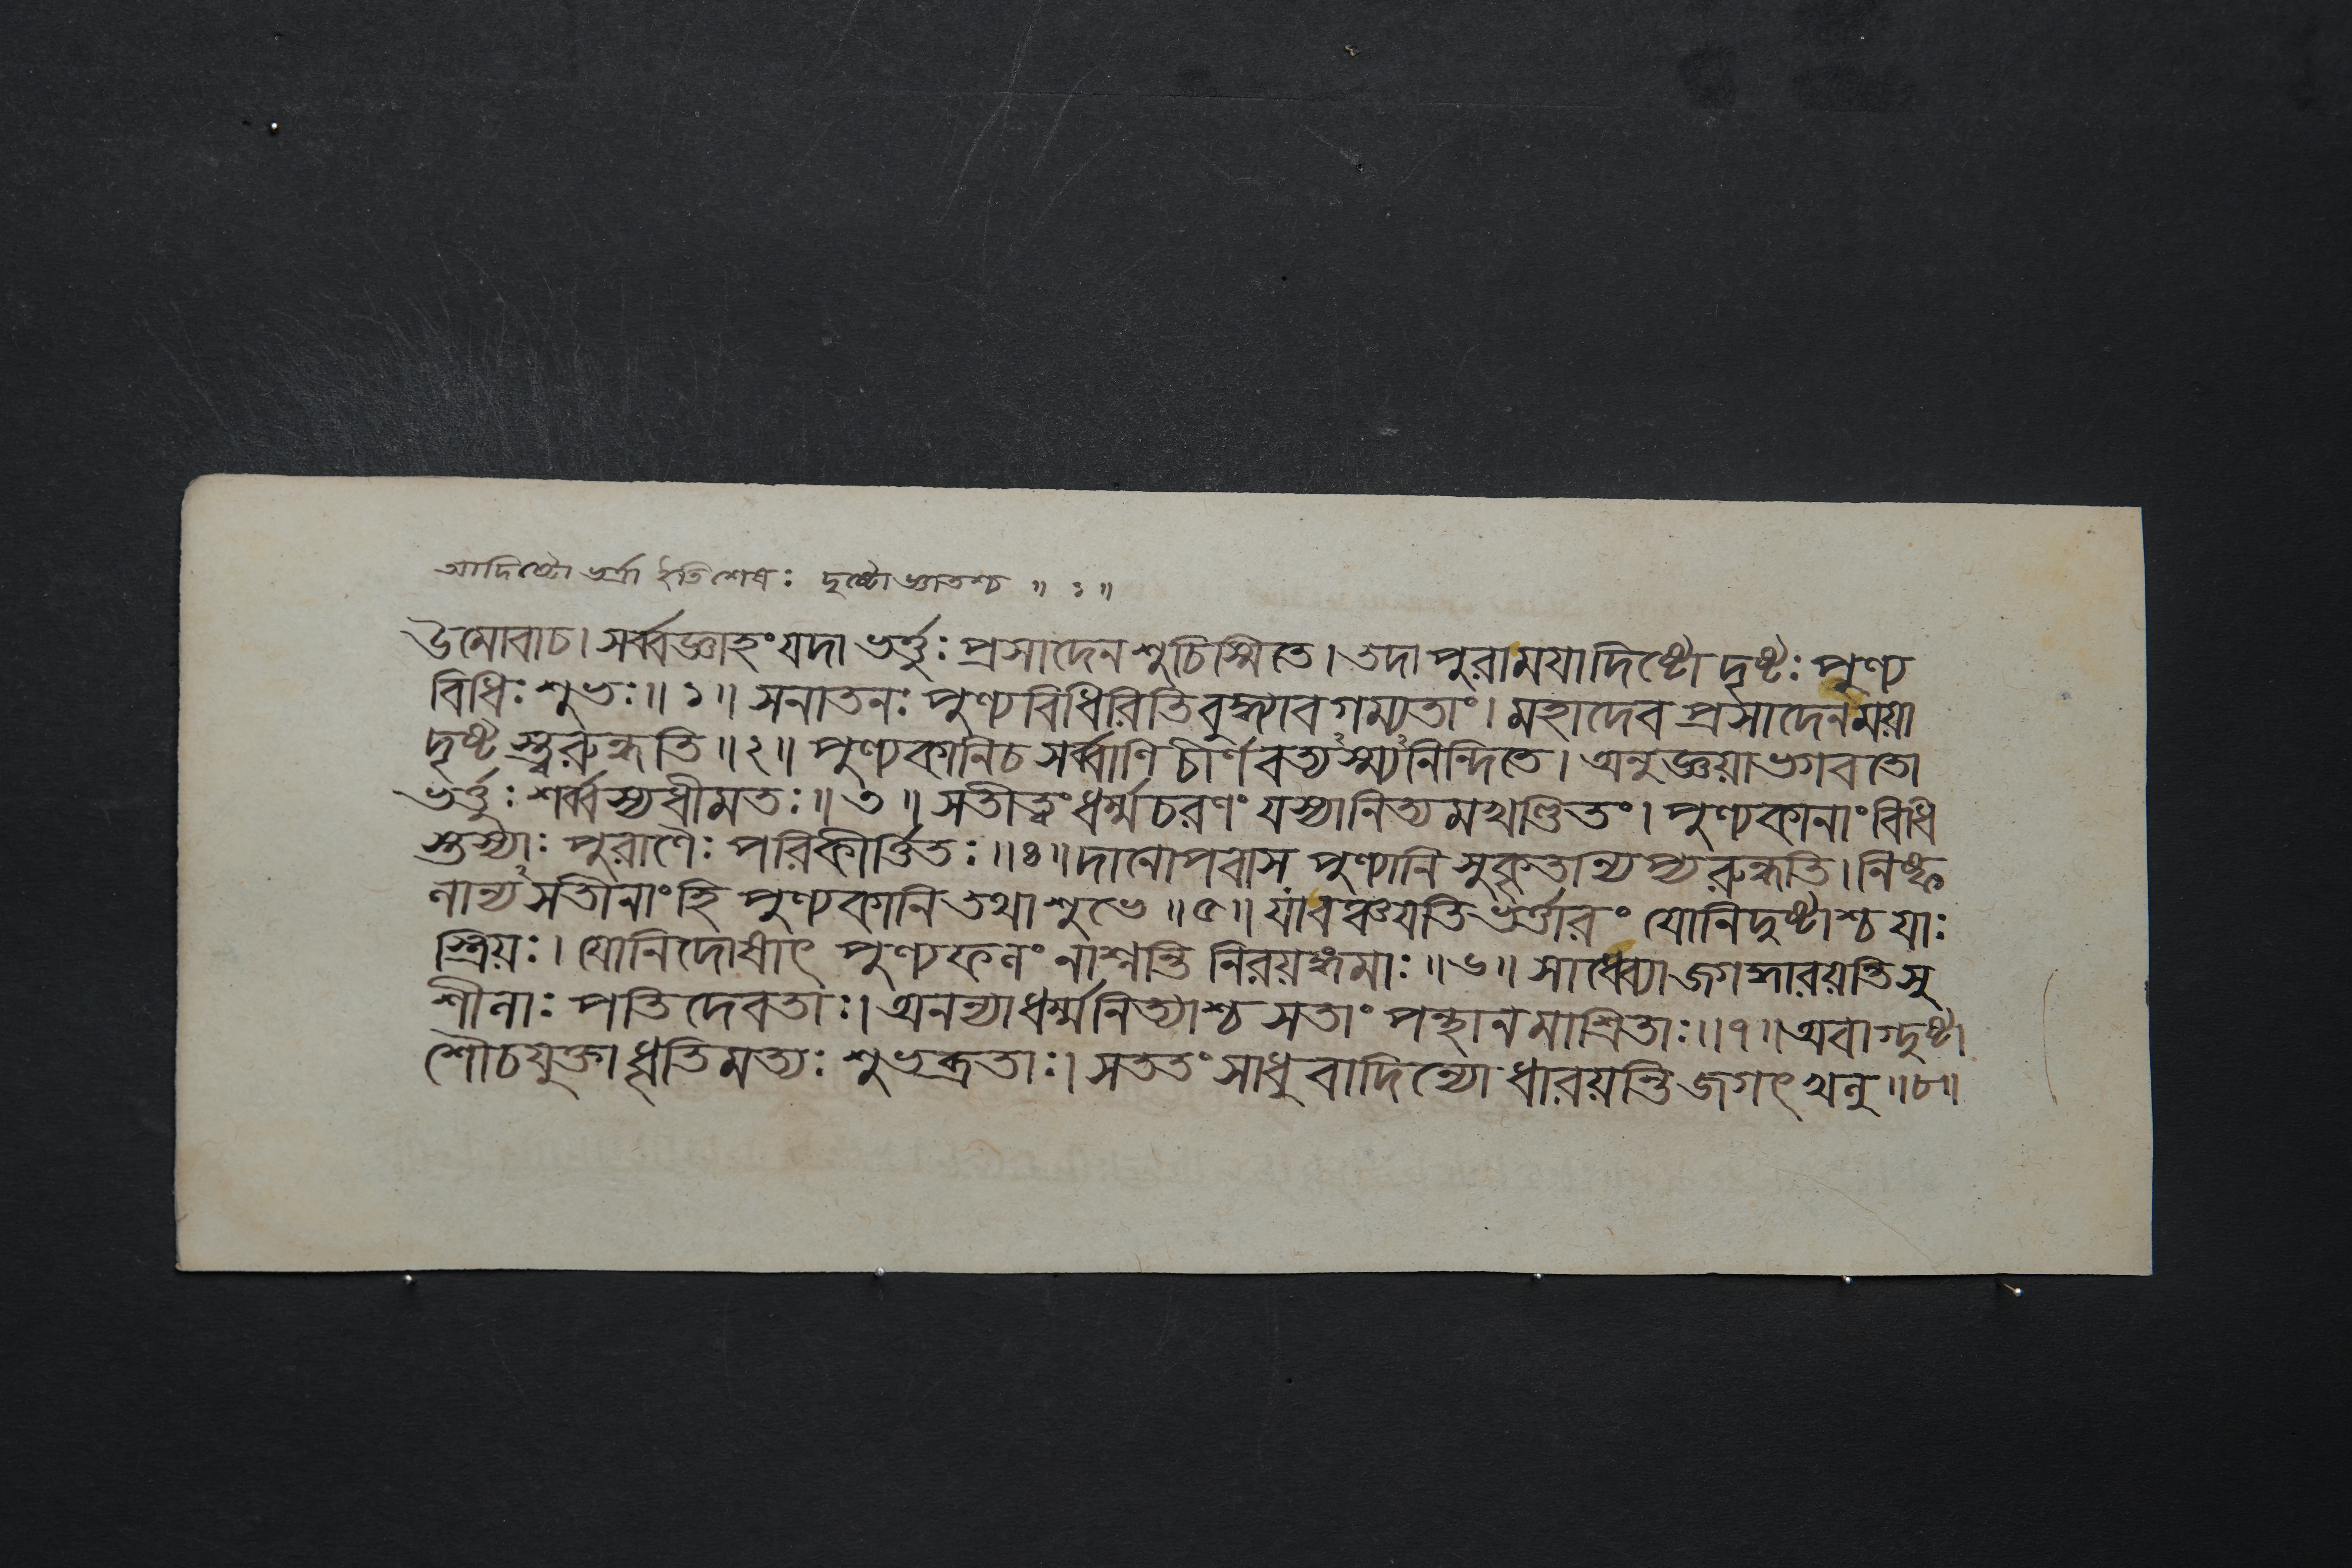 আদিষ্টো ভর্ত্রা ইতিশেষঃ দৃষ্টোজ্ঞাতশ্চ ॥ ১ ॥
উমোবাচ। সর্ব্বজ্ঞাহং যদা ভর্ত্তুঃ প্রসাদেন শুচিস্মিতে। তদা পুরাময়াদিষ্টো দৃষ্টঃ পুণ্য
বিধিঃ শুভঃ॥ ১ ॥ সনাতনঃ পুণ্যবিধিরিতিবুদ্ধ্যাবগম্যতাং। মহাদেব প্রসাদেনময়া
দৃষ্টস্ত্বরুন্ধতি ॥ ২॥ পুণ্যকানিচ সর্ব্বাণি চীর্ণবত্যস্ম্যনিন্দিতে। অনুজ্ঞয়াভগবতো
ভর্ত্তুঃ শর্ব্বস্যধীমতঃ॥ ৩ ॥ সতীত্বং ধর্ম্মচরণং যস্যানিত্যমখণ্ডিতং। পুণ্যকানাংবিধি
স্তস্যাঃ পুরাণৈঃ পরিকীর্ত্তিতঃ ॥৪॥ দানোপবাস পুণ্যানি সুকৃতান্যপ্যরুন্ধতি। নিষ্ফ
লান্যসতীনাংহি পুণ্যকানি তথা শুভে ॥৫॥ যাবঞ্চয়তিভর্ত্তারং যোনিদুষ্টাশ্চ যাঃ
স্ত্রিয়ঃ। যোনিদোষাৎ পুণ্যফলং নাশ্নন্তি নিরয়ঙ্গমাঃ ॥৬॥ সাধ্ব্যোজগদ্ধারয়ন্তিসু
শীলাঃ পতিদেবতাঃ। অনন্যাধর্ম্মনিত্যাশ্চ সতাং পন্থানমাশ্রিতাঃ॥৭॥ অবাগ্দুষ্টা
শৌচযুক্তা ধৃতিমত্যঃ শুভব্রতাঃ। সততং সাধুবাদিন্যো ধারয়ন্তি জগৎখলু ॥৮॥